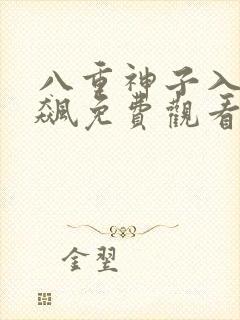 八重神子入
飙免費觀看
金翌